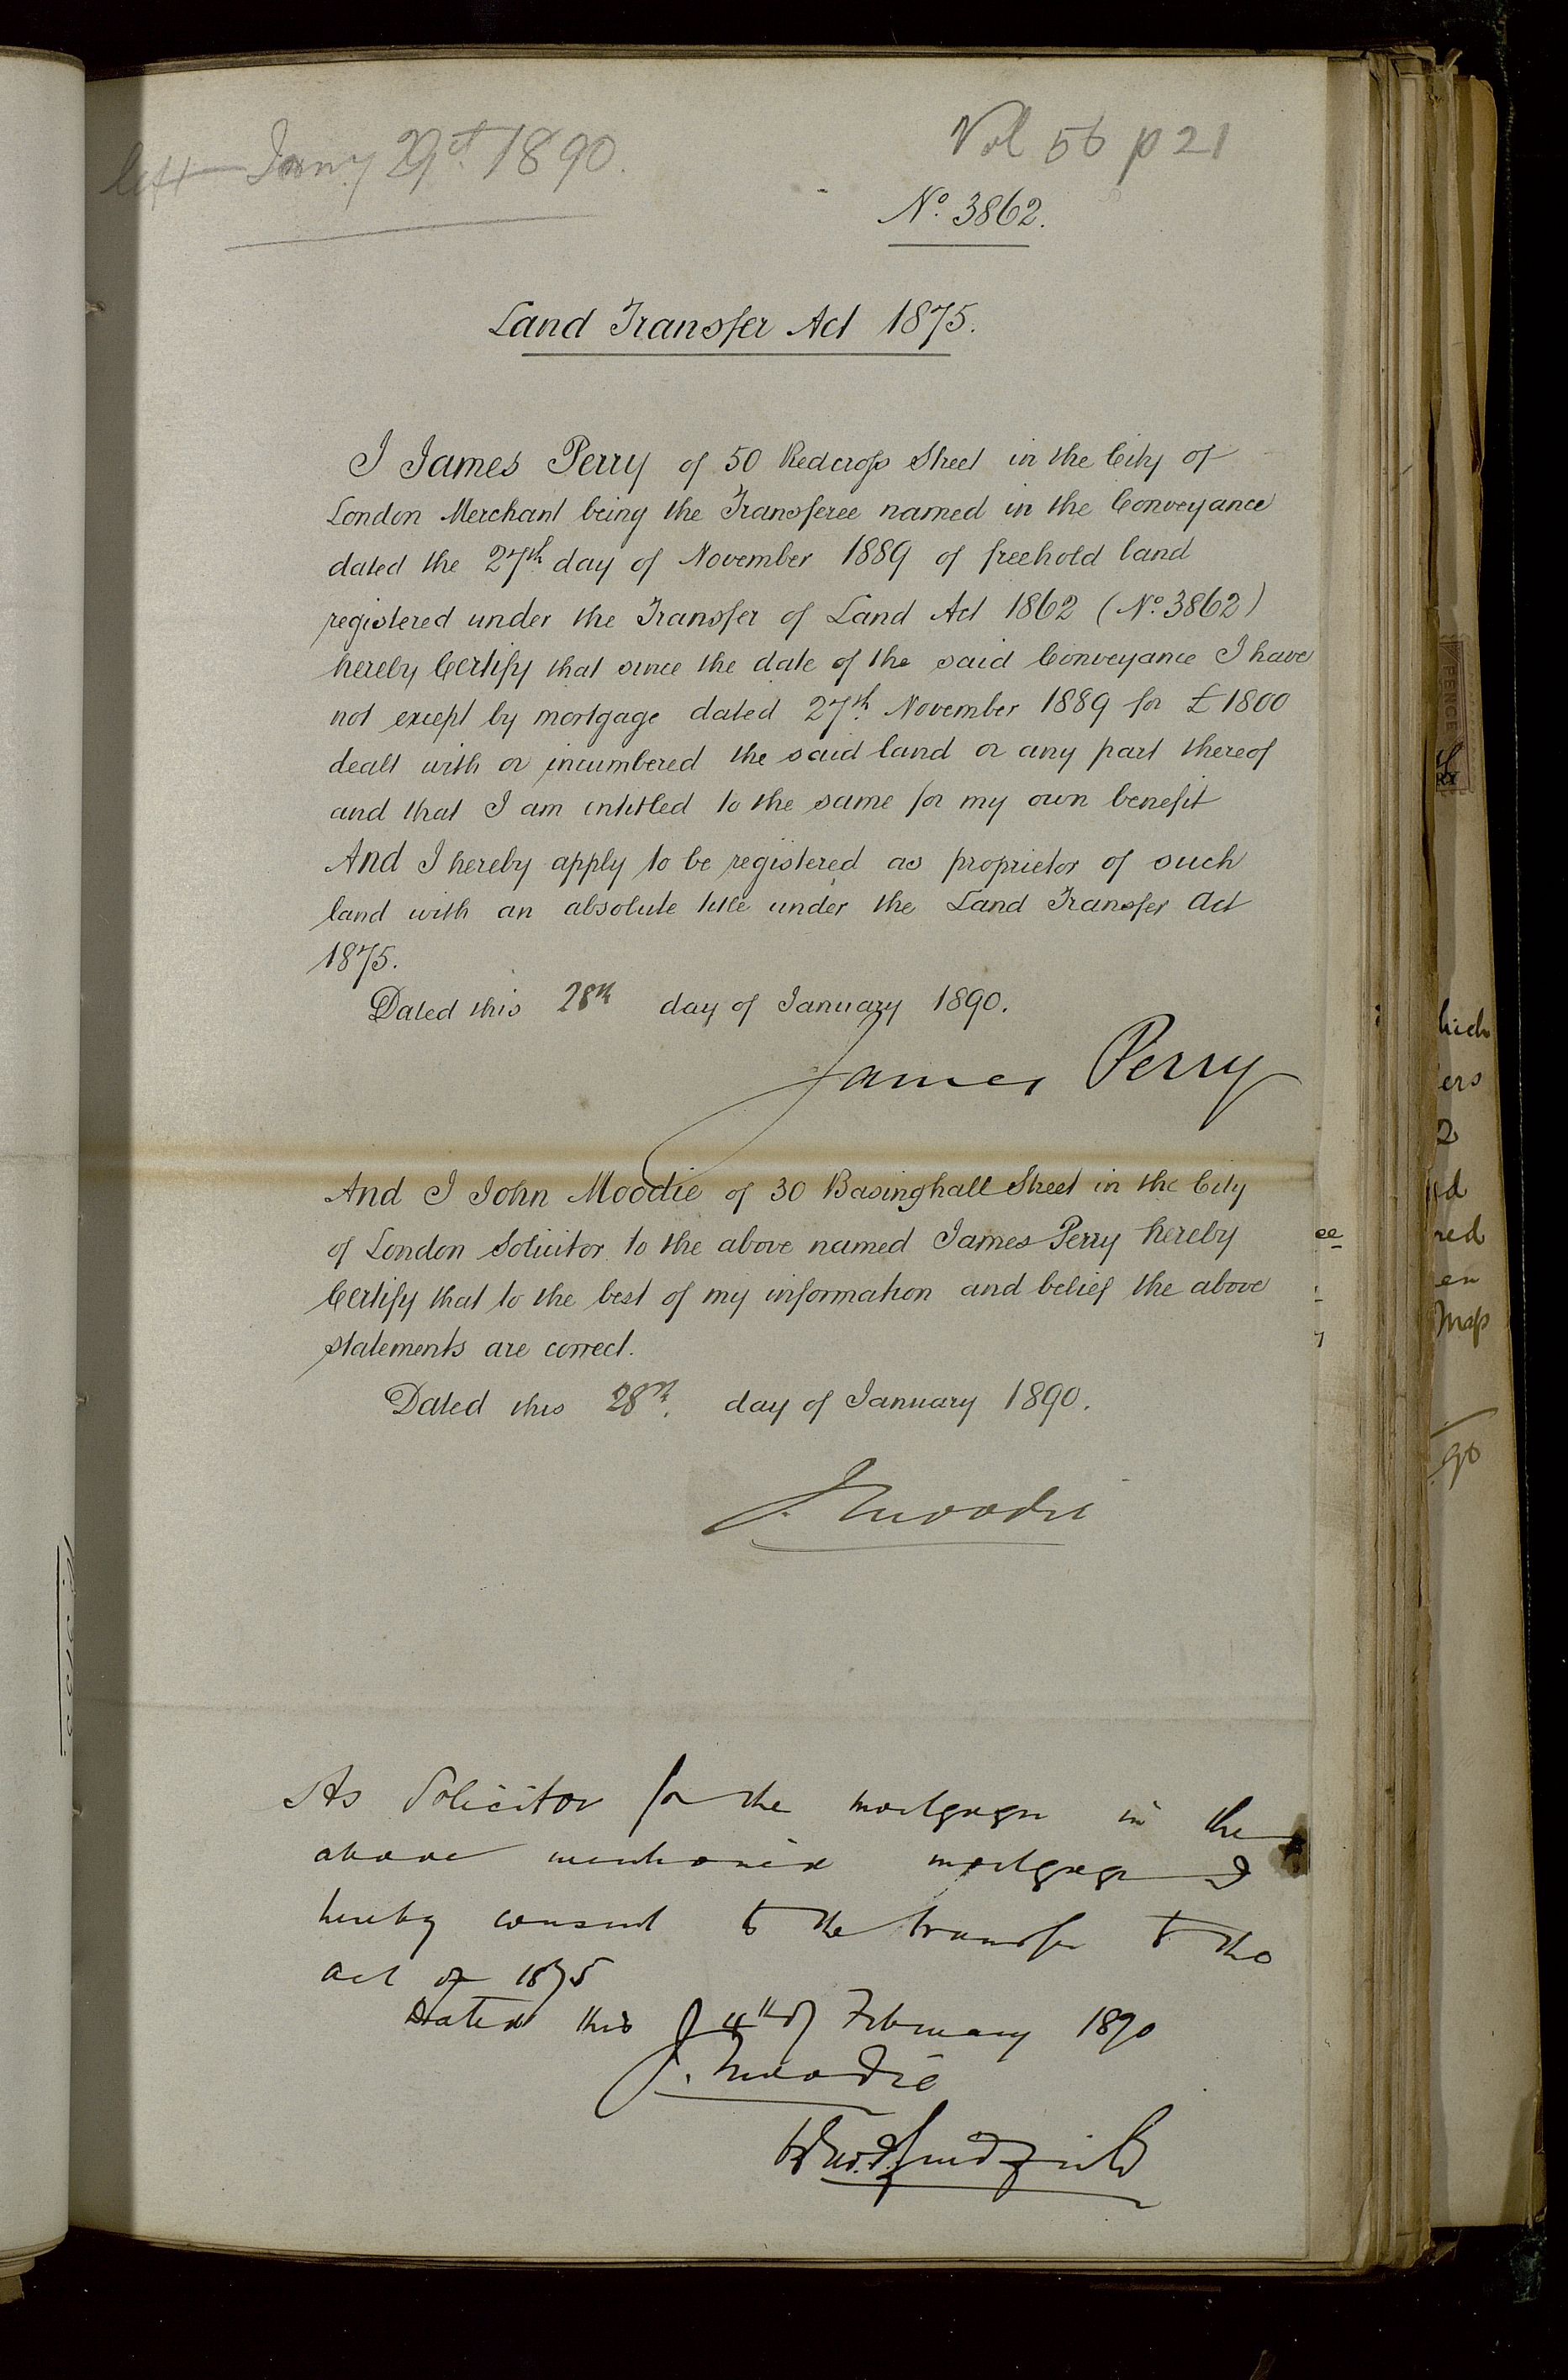 left Jany 29th 1890.
Vol 56 p 21
No. 3862.
Land Transfer Act 1875.
I James Perry of 50 Redcross Street in the City of
London Merchant being the Transferee named in the Conveyance
dated the 27th day of November 1889 of freehold land
registered under the Transfer of Land Act 1862 (No. 3862)
hereby Certify that since the date of the said Conveyance I have
not except by mortgage dated 27th November 1889 for £1800
dealt with or incumbered the said land or any part thereof
and that I am intitled to the same for my own benefit
And I hereby apply to be registered as proprietor of such
land with an absolute title under the Land Transfer Act
1875.
Dated this 28th day of January 1890.
James Perry
And I John Moodie of 30 Basinghall Street in the City
of London Solicitor to the above named James Perry hereby
Certify that to the best of my information and belief the above
statements are correct.
Dated this 28th. day of January 1890.
J. Moodie
As Solicitor for the mortgagee in the
above mentioned mortgage I
hereby consent to the transfer to the
act of 1875
Dated this 4th of February 1890
J. Moodie
PENCE
hich
ers
2
red
en
Map
90
ee